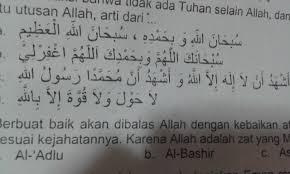 bahwa tidak ada Tuhan selain Allah, dan
tu utusan Allah, arti dari ...
سُبْحَانَ اللَّهِ وَ بِحَمْدِهِ ، سُبْحَانَ اللَّهِ الْعَظِيْمِ
سُبْحَانَكَ اللَّهُمَّ وَبِحَمْدِكَ اللَّهُمَّ اغْفِرْلِيْ
أَشْهَدُ أَنْ لَا إِلَهَ إِلَّا اللَّهُ وَ أَشْهَدُ أَنَّ مُحَمَّدًا رَسُوْلُ اللَّهِ
لَا حَوْلَ وَلَا قُوَّةَ إِلَّا بِاللَّهِ
Berbuat baik akan dibalas Allah dengan kebaikan
esuai kejahatannya. Karena Allah adalah zat yang M
Al-'Adlu b. Al-Bashir c. As